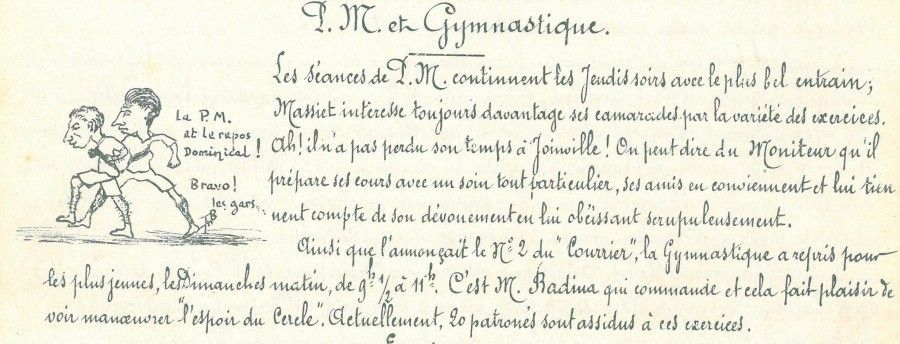 P. M. et Gymnastique.
Les séances de P. M. continuent les Jeudis soirs avec le plus bel entrain;
Massiet intéresse toujours davantage ses camarades par la variété des exercices.
Ah! il n'a pas perdu son temps à Joinville! On peut dire du Moniteur qu'il
prépare ses cours avec un soin tout particulier, ses amis en conviennent et lui tien
nent compte de son dévouement en lui obéissant scrupuleusement.
la P.M.
et le repos
Dominical!
Bravo!
les gars..
Ainsi que l'annonçait le Nº 2 du "Courrier", la Gymnastique a repris pour
les plus jeunes, les Dimanches matin, de 9h 1/2 à 11h. C'est M. Badina qui commande et cela fait plaisir de
voir manœuvrer "l'espoir du Cercle". Actuellement, 20 patronés sont assidus à ces exercices.